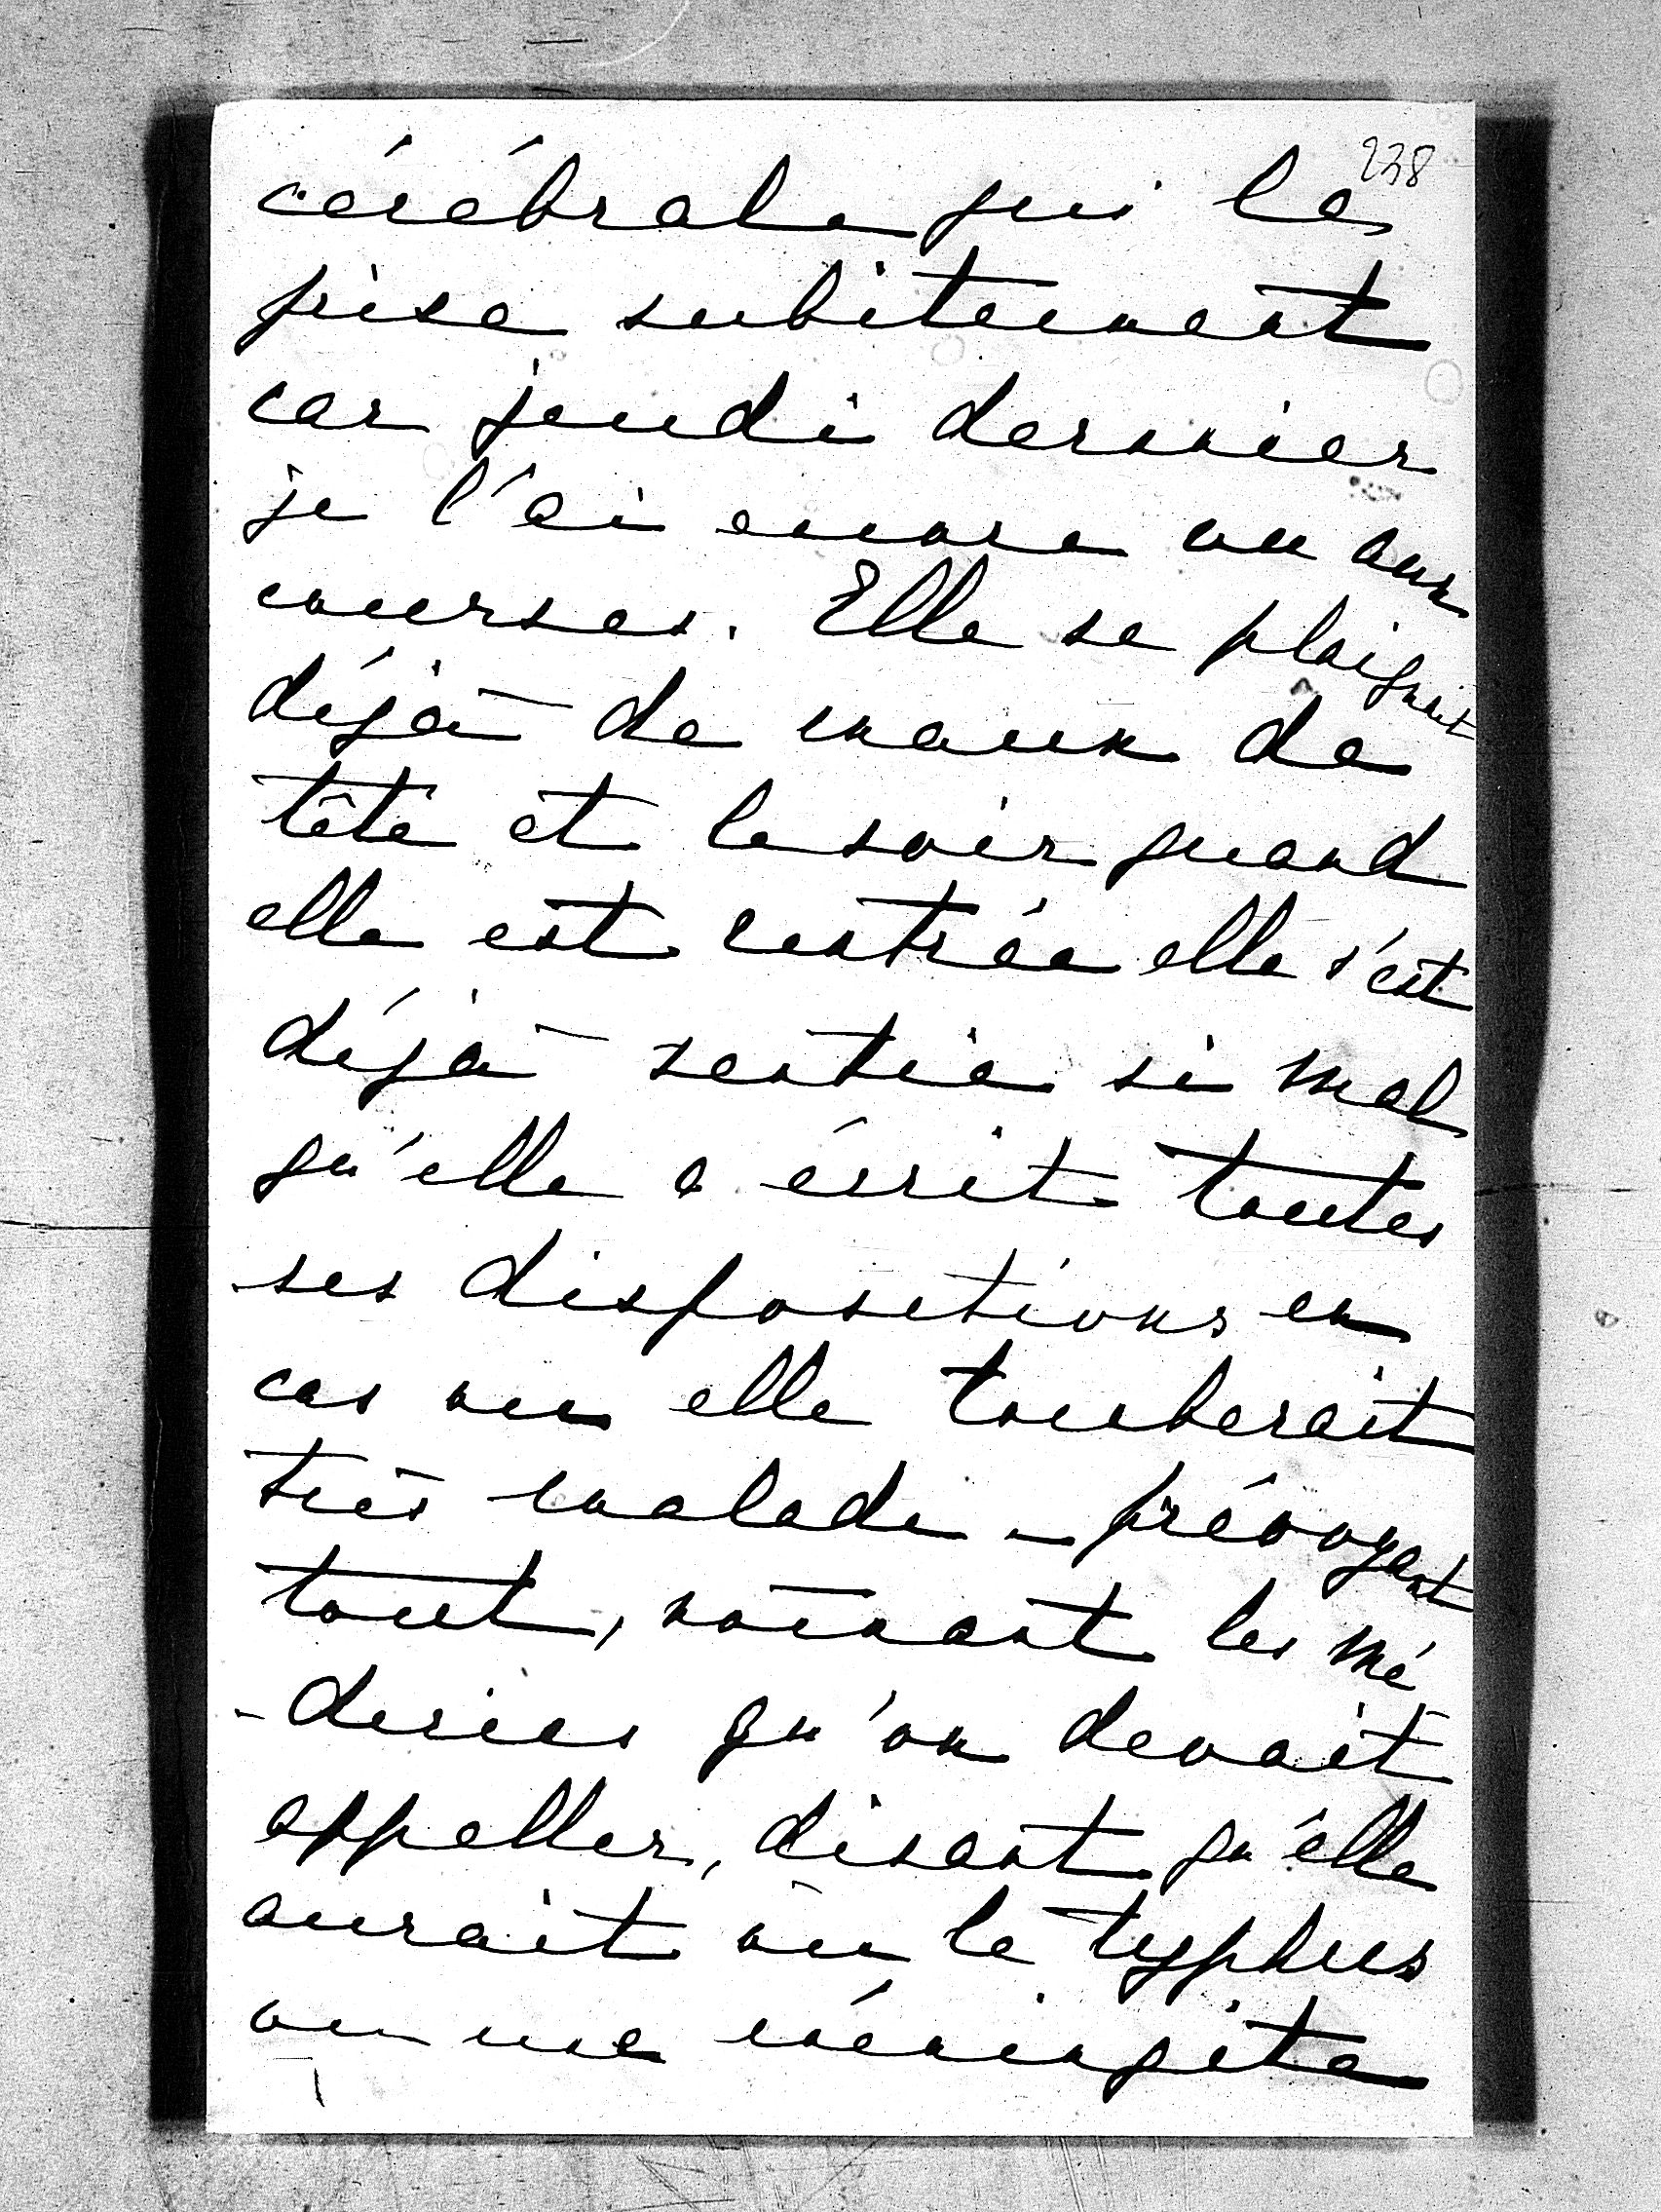 238
cérébrale qui l'a
prise subitement
car jeudi dernier
je l'ai encore vu aux
courses. Elle se plaignait
déjà de maux de
tête et le soir quand
elle est rentrée elle s'est
déjà sentie si mal
qu'elle a écrit toutes
ses dispositions en
cas ou elle tomberait
très malade – prévoyant
tout, nommant les mé
-decins qu'on devait
appeller, disant qu'elle
aurait ou le typhus
ou une méningite